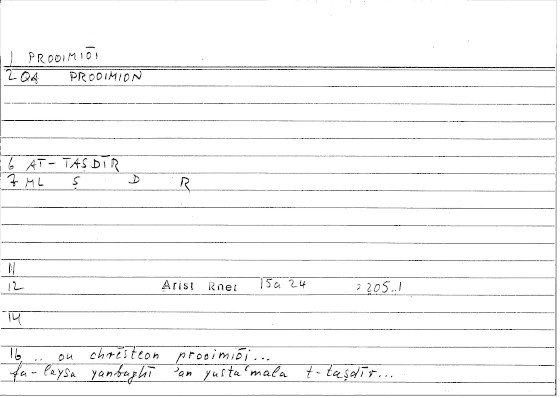 1 PROOIMIŌI
2 QA PROOIMION
6 AT-TAṢDĪR
7 ML Ṣ D R
11
12 Arist Rhet 15a 24 :205.1
14
16 .. ou chrēsteon prooimiōi...
fa-laysa yanbaghī ʾan yustaʿmala t-taṣdīr...